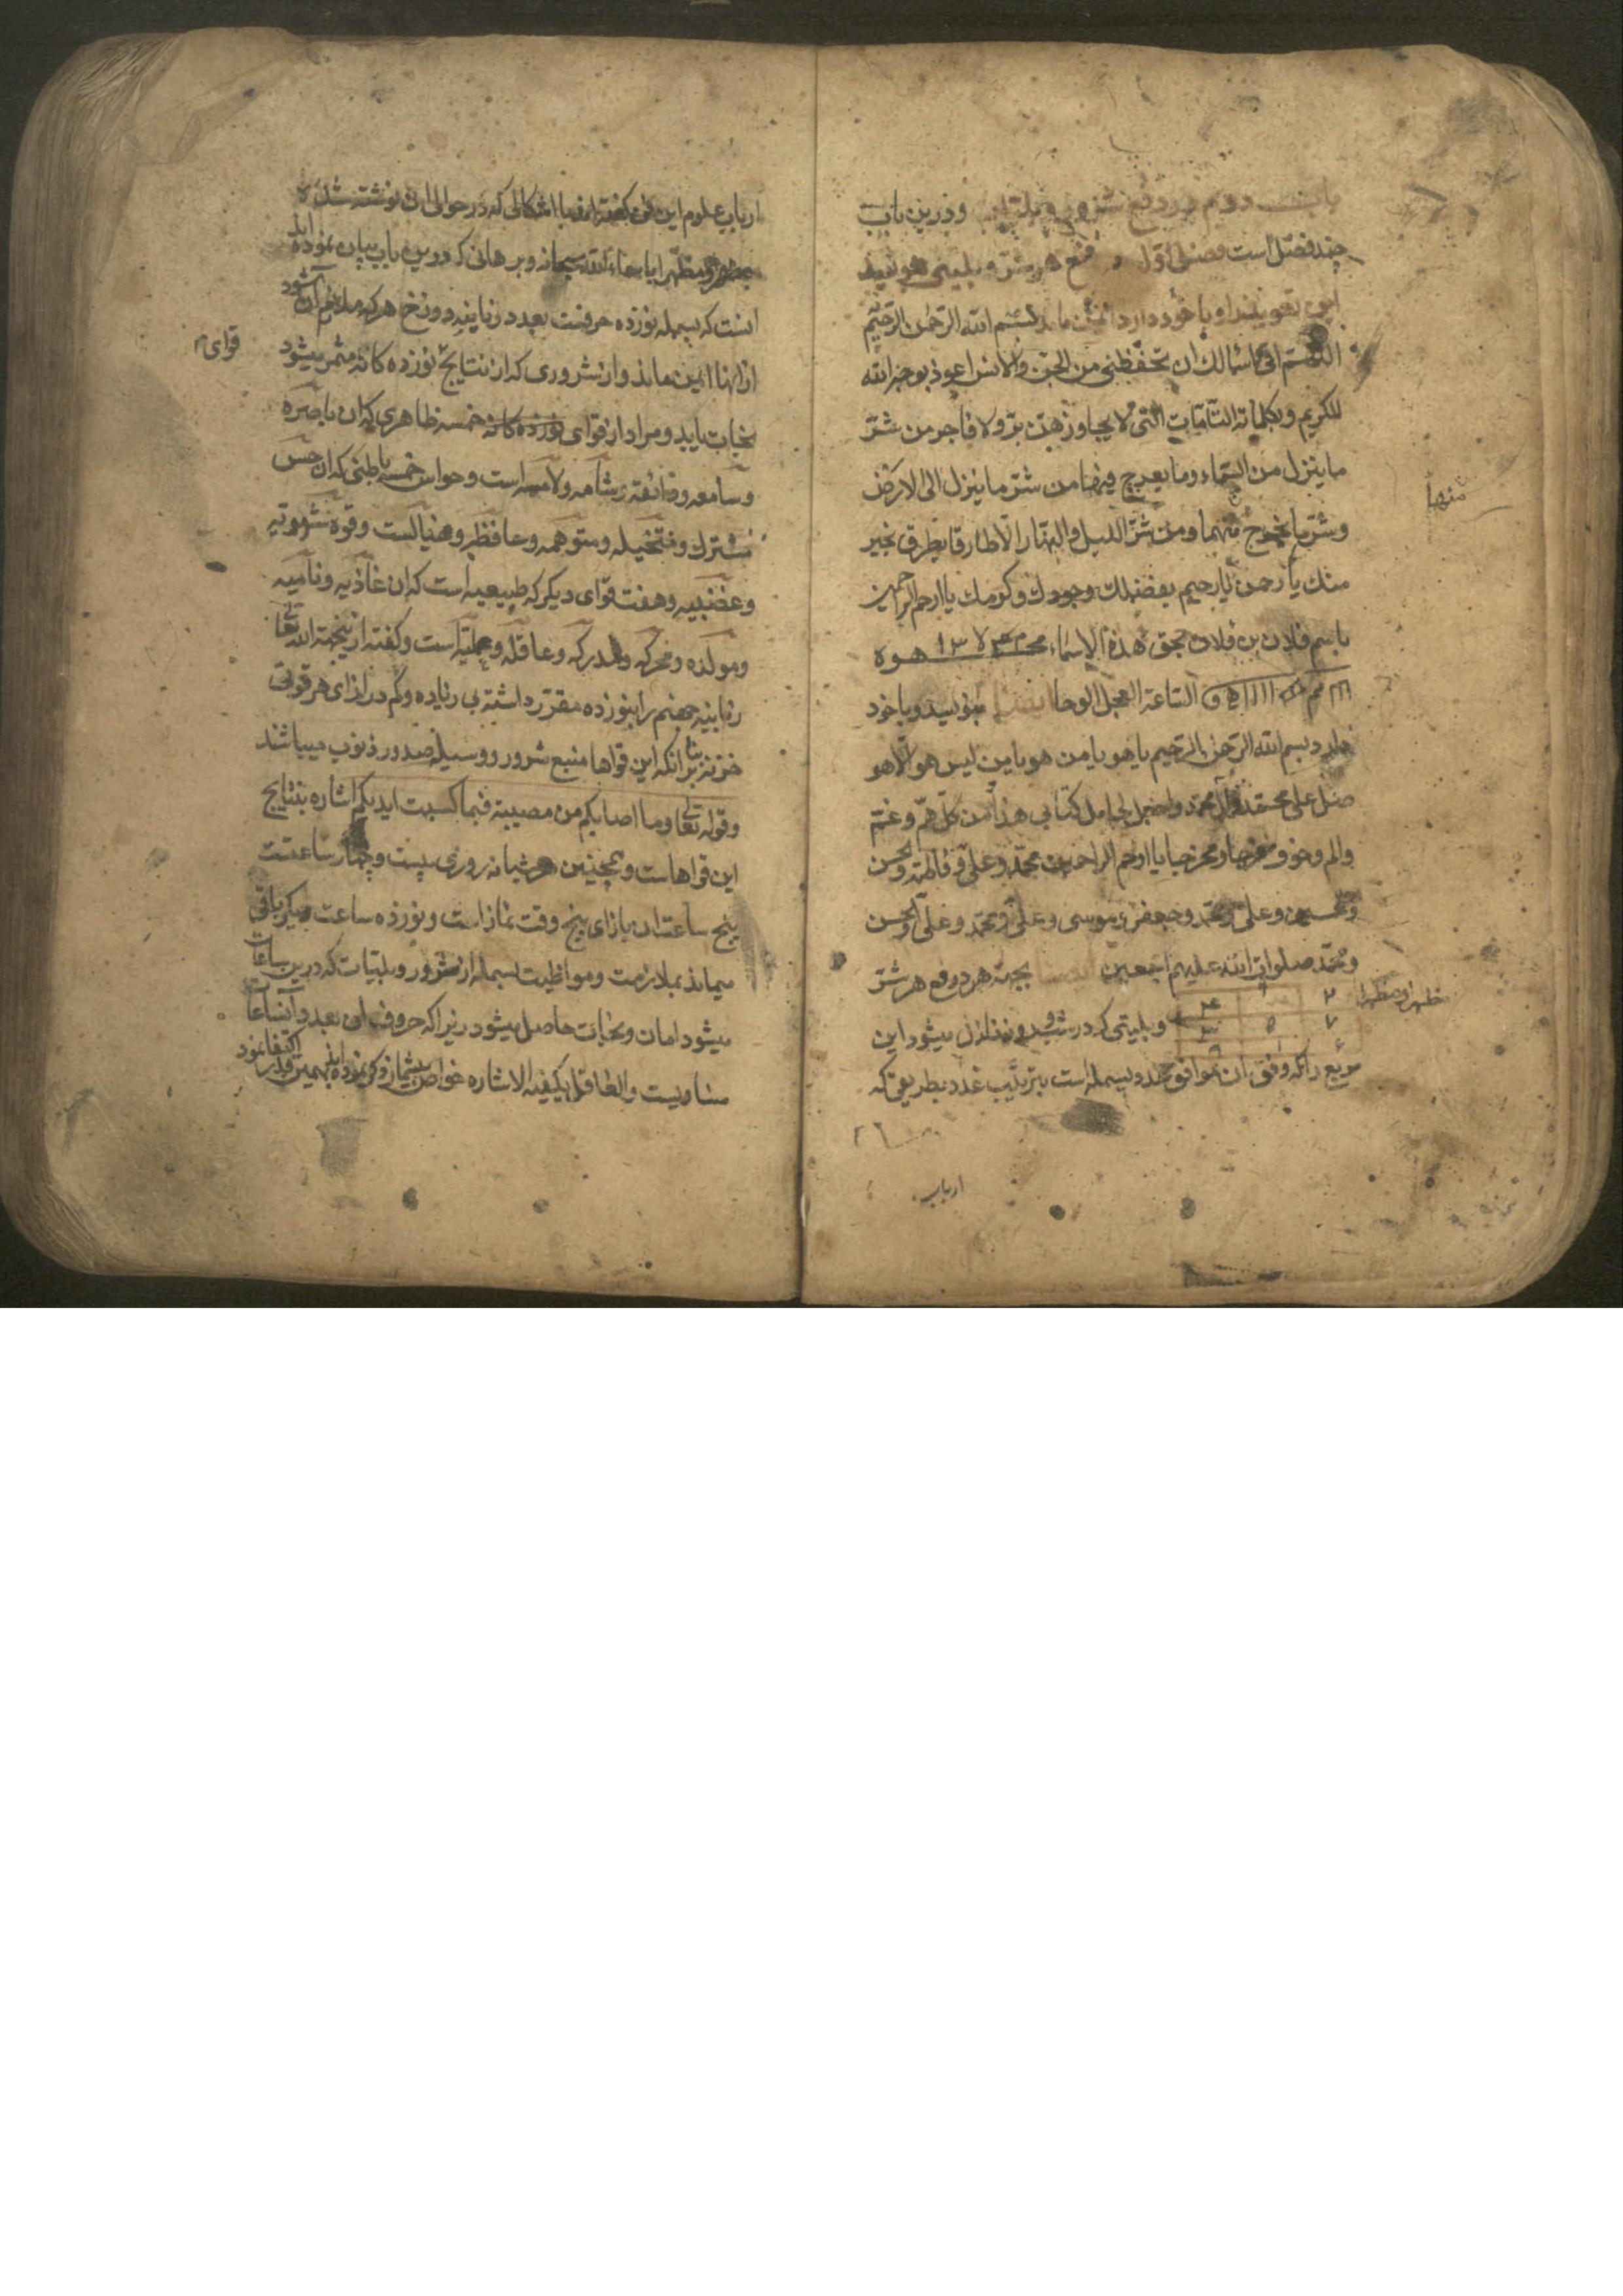 باب دوم در دفع شرور و بلیات و درین باب
چند فصل است فصل اول در دفع هر شر و بلیتی هر که
این تعویذ را با خود دارد ایمن ماند بسم الله الرحمن الرحیم
اللهم انی اسالک ان تحفظنی من الجن والانس اعوذ بوجه الله
الکریم وبکلماته التامات التی لا یجاوزهن بر ولا فاجر من شر
ما ینزل من السماء وما یعرج فیها من شر ما ینزل الی الارض
وشر ما یخرج منهما ومن شر اللیل والنهار الا طارقا یطرق بخیر
منها
منک یا رحمن یا رحیم بفضلک وجودک وکرمک یا ارحم الراحمین
باسم فلان بن فلان بحق هذه الاسماء
الساعه العجل الوحا ایضا بنویسد و با خود
دارد بسم الله الرحمن الرحیم یا هو یا من هو یا من لیس هو الا هو
صل علی محمد وآل محمد واجعل لحامل کتابی هذا من کل هم وغم
والم وخوف فرجا ومخرجا یا ارحم الراحمین محمد وعلی وفاطمه والحسن
والحسین وعلی ومحمد وجعفر وموسی وعلی ومحمد وعلی والحسن
ومحمد صلوات الله علیهم اجمعین ایضا بجهة دفع هر شر
و بلیتی که در شب و روز نازل میشود این
۲ ۷
مربع را که وفق آن موافق عدد بسمله است بترتیب عدد بطریقی که
ارباب
ارباب علوم این فن گفته اند با اشکالی که در حوالی آن نوشته شده
سبحانه و برهانی که درین باب بیان نموده اند
آنست که بسمله نوزده حرفست بعدد زبانیه دوزخ هر که ملازم آن شود
از آنها ایمن ماند و از شروری که از نتایج نوزده کانه مثمر میشود
قوای
نجات یابد و مراد از قوای نوزده کانه خمسه ظاهری که آن باصره
و سامعه و ذائقه و شامه و لامسه است و حواس خمسه باطنی که آن حس
مشترک و متخیله و متوهمه و حافظه و خیالست و قوه شهویه
و غضبیه و هفت قوای دیگر که طبیعیه است که آن غاذیه و نامیه
و مولده و محرکه و مدرکه و عاقله و عملیه است و گفته از ینجهة الله تعا
زبانیه جهنم را بنوزده مقرر داشته بی زیاده و کم در ازای هر قوتی
خزنه بنا بر آنکه این قواها منبع شرور و وسیله صدور ذنوب میباشند
و قوله تعا وما اصابکم من مصیبة فبما کسبت ایدیکم اشاره بنتایج
این قواهاست و همچنین هر شبانه روزی بیست و چهار ساعتست
پنج ساعت آن بازای پنج وقت نماز است و نوزده ساعت دیگر باقی
میماند بملازمت و مواظبت بسمله از شرور و بلیات که درین ساعات
میشود امان و نجات حاصل میشود زیرا که حروف آن بعدد آنساعات
مساویست والعاقل یکفیه الاشاره خواص بیشمار ذکر نموده اند بهمین قدر اکتفا نمود